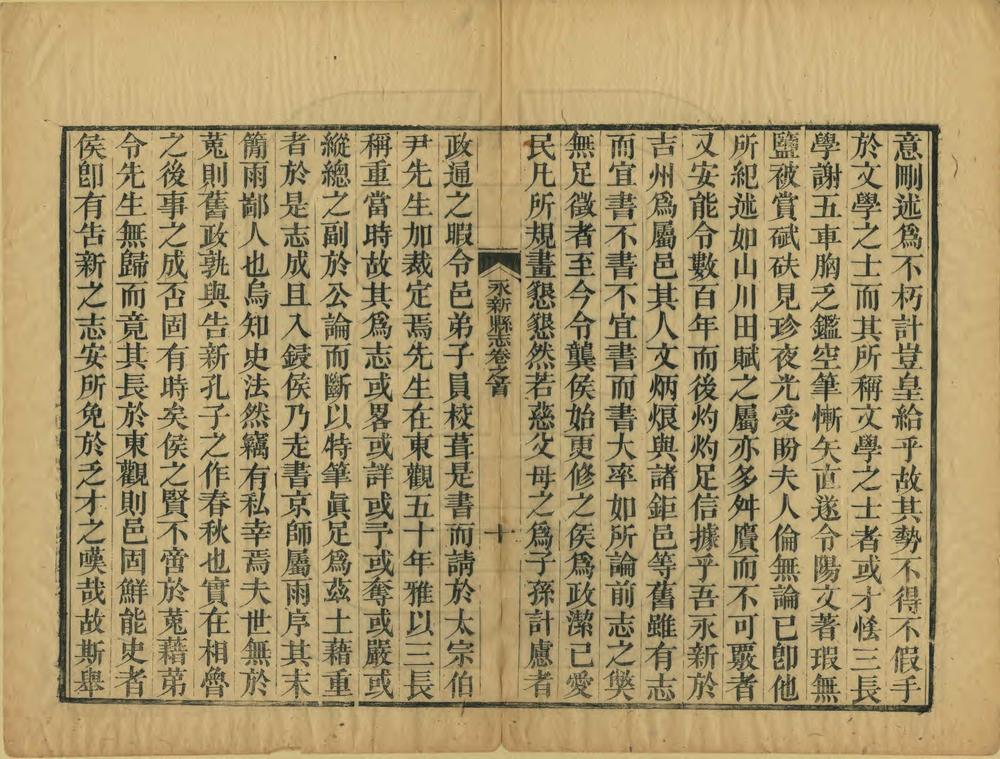 意刪述爲不朽計豈皇給乎故其勢不得不假手
於文學之士而其所稱文學之士者或才恡三長
學謝五車胸乏鑑空筆慚矢直遂令陽文著瑕無
鹽被賞碔砆見珍夜光受盼夫人倫無論已卽他
所紀述如山川田賦之屬亦多舛贋而不可覈者
又安能令數百年而後灼灼足信據乎吾永新於
吉州爲屬邑其人文炳烺與諸鉅邑等舊雖有志
而宜書不書不宜書而書大率如所論前志之與
無足徵者至今令龔侯始更修之侯爲政潔已愛
民凡所規畫懇懇然若慈父母之爲子孫計慮者
永新縣志卷之首
十
政通之暇令邑弟子員校葺是書而請於太宗伯
尹先生加裁定焉先生在東觀五十年雅以三長
稱重當時故其爲志或畧或詳或予或奪或嚴或
縱總之副於公論而斷以特筆眞足爲茲土藉重
者於是志成且入鋟侯乃走書京師屬雨序其末
簡雨鄙人也烏知史法然竊有私幸焉夫世無於
蒐則舊政孰與告新孔子之作春秋也實在相魯
之後事之成否固有時矣侯之賢不啻於蒐藉苐
令先生無歸而竟其長於東觀則邑固鮮能史者
侯卽有告新之志安所免於乏才之嘆哉故斯舉